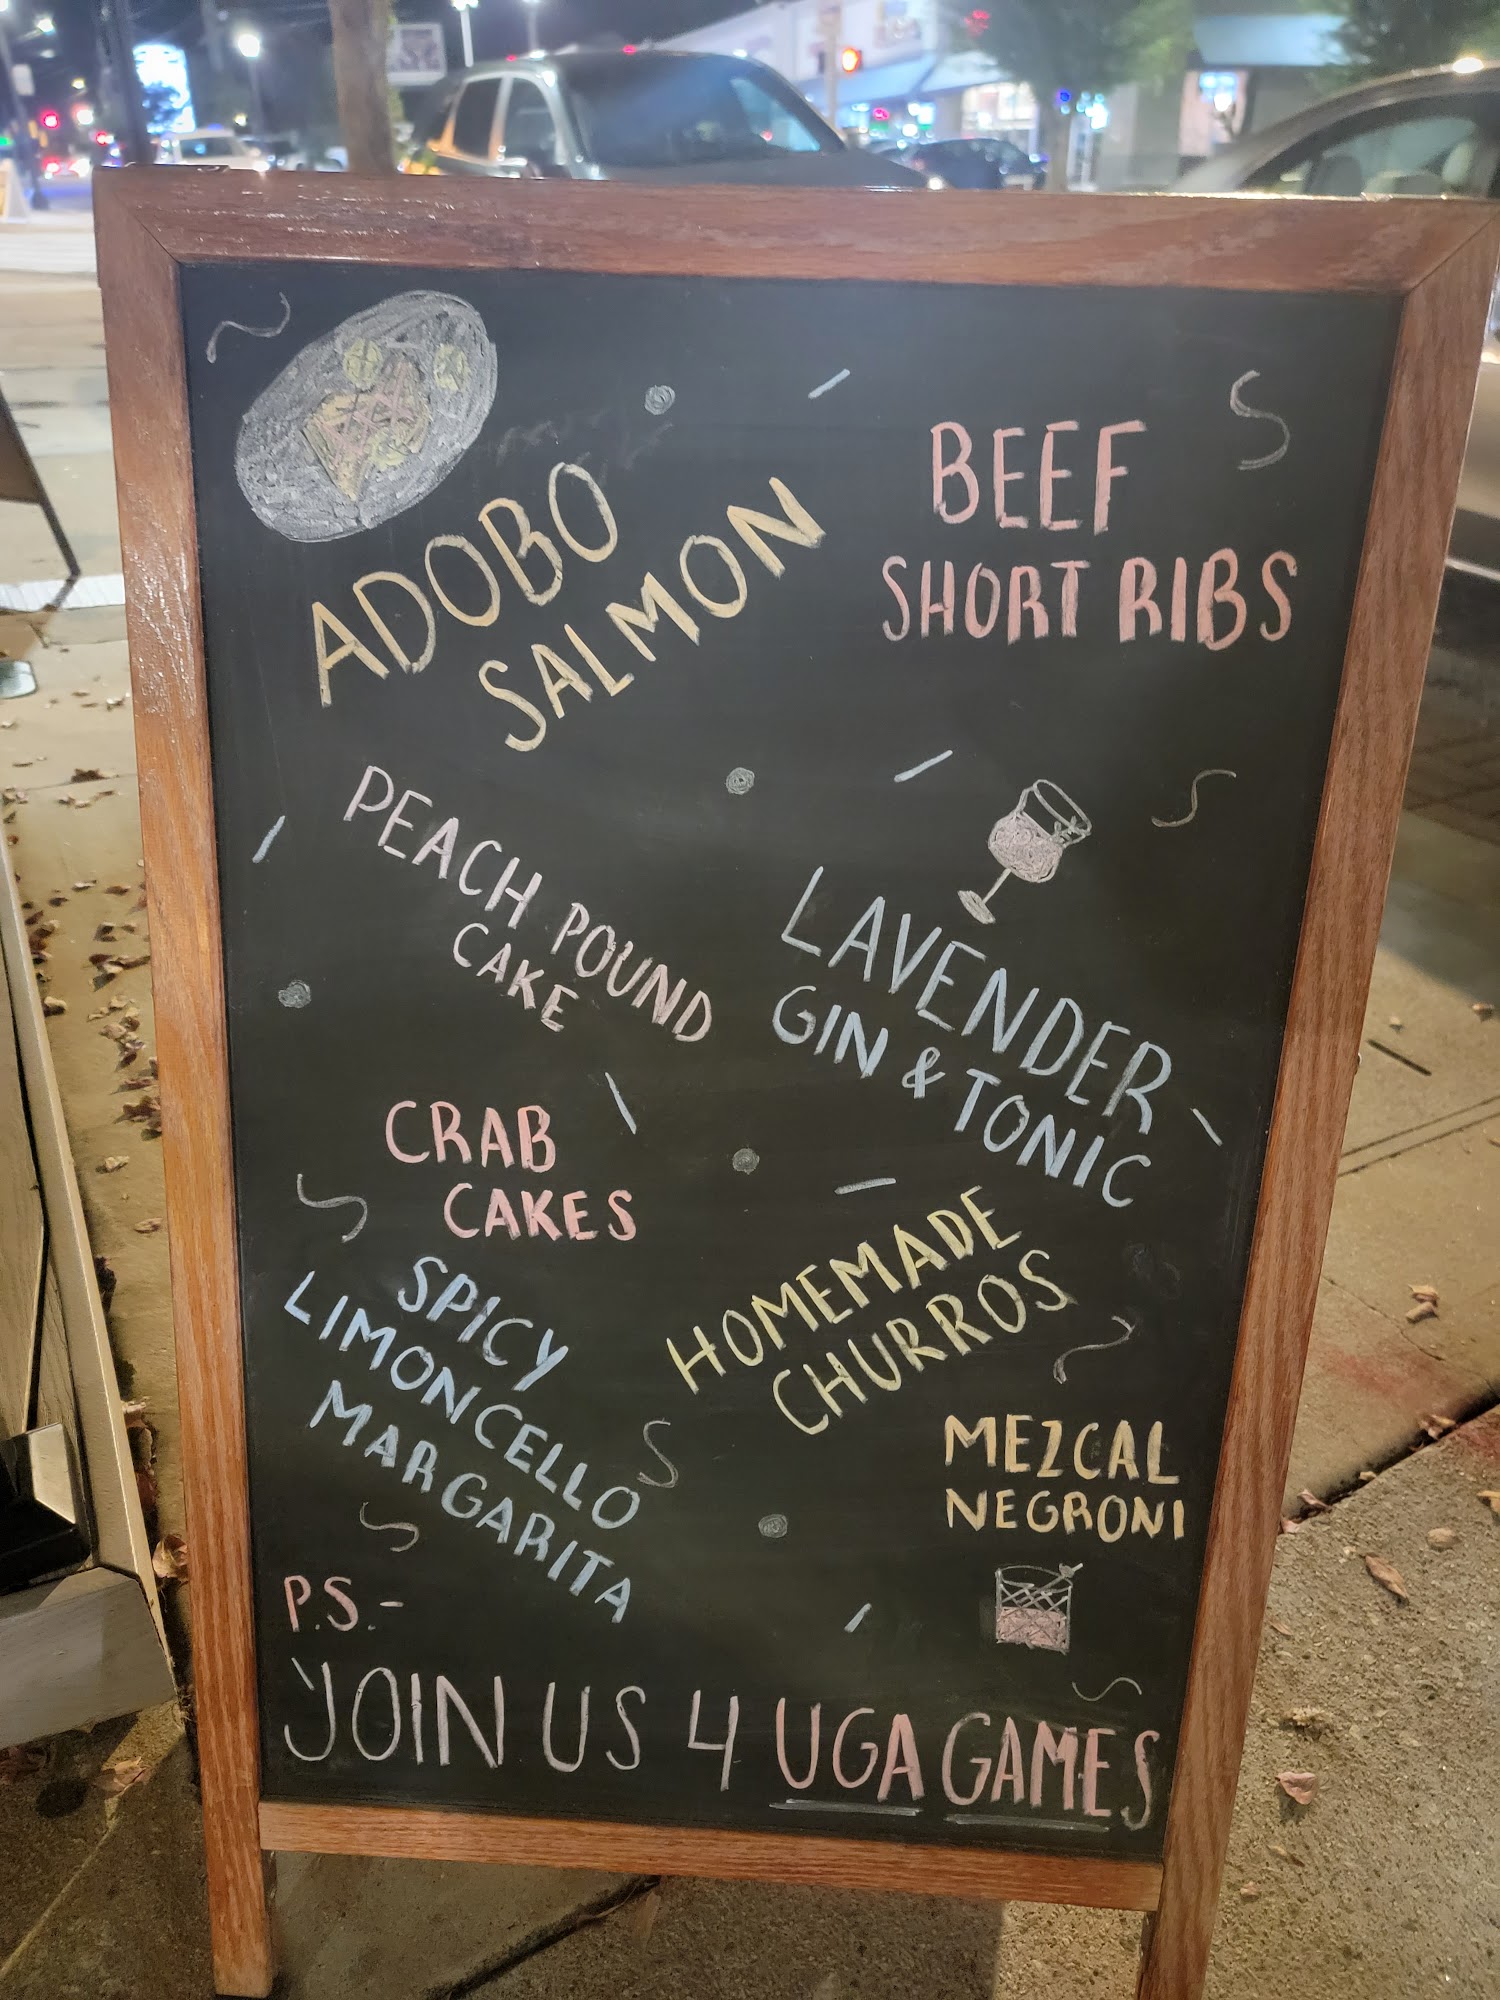 ADOBO
SALMON
BEEF
SHORT RIBS
PEACH POUND
CAKE
LAVENDER
GIN & TONIC
CRAB
CAKES
HOMEMADE
CHURROS
SPICY
LIMONCELLO
MARGARITA
MEZCAL
NEGRONI
P.S.-
JOIN US 4 UGA GAMES